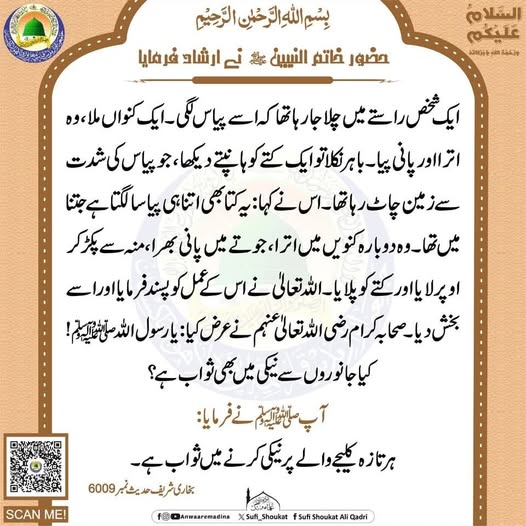 بِسْمِ اللّٰهِ الرَّحْمٰنِ الرَّحِيْمِ
السَّلَامُ
عَلَيْكُمْ
وَرَحْمَةُ اللّٰهِ وَبَرَكَاتُهُ
حضور خاتم النبیین ﷺ نے ارشاد فرمایا
ایک شخص راستے میں چلا جا رہا تھا کہ اسے پیاس لگی۔ ایک کنواں ملا، وہ
اترا اور پانی پیا۔ باہر نکلا تو ایک کتے کو ہانپتے دیکھا، جو پیاس کی شدت
سے زمین چاٹ رہا تھا۔ اس نے کہا: یہ کتا بھی اتنا ہی پیاسا لگتا ہے جتنا
میں تھا۔ وہ دوبارہ کنویں میں اترا، جوتے میں پانی بھرا، منہ سے پکڑ کر
اوپر لایا اور کتے کو پلایا۔ اللہ تعالیٰ نے اس کے عمل کو پسند فرمایا اور اسے
بخش دیا۔ صحابہ کرام رضی اللہ تعالیٰ عنہم نے عرض کیا: یا رسول اللہ ﷺ!
کیا جانوروں سے نیکی میں بھی ثواب ہے؟
آپ ﷺ نے فرمایا:
ہر تازہ کلیجے والے پر نیکی کرنے میں ثواب ہے۔
بخاری شریف حدیث نمبر 6009
SCAN ME!
Anwaaremadina
Sufi_Shoukat
Sufi Shoukat Ali Qadri